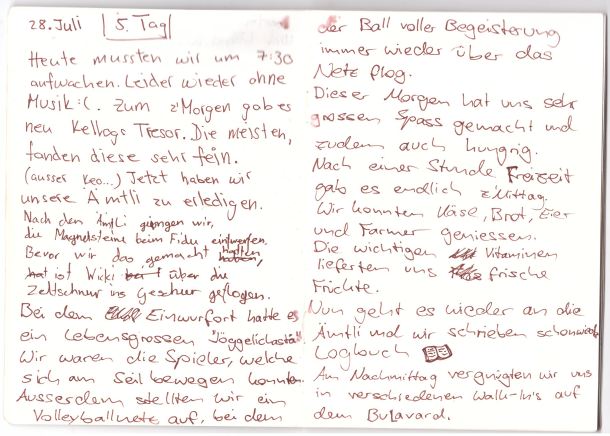 28. Juli 5. Tag
Heute mussten wir um 7:30
aufwachen. Leider wieder ohne
Musik :(. Zum z'Morgen gab es
neu Kellogs Tresor. Die meisten,
fanden diese sehr fein.
(ausser Keo...) Jetzt haben wir
unsere Ämtli zu erledigen.
Nach den Ämtli gingen wir,
die Magnetsteine beim Fidu einwerfen.
Bevor wir das gemacht hatten
ist Wicki über die
Zeltschnur ins Geschur geflogen.
Bei dem Einwurfort hatte es
ein Lebensgrossen "Jöggelichastä"
Wir waren die Spieler, welche
sich am Seil bewegen konnten.
Ausserdem stellten wir ein
Volleyballnetz auf, bei dem
der Ball voller Begeisterung
immer wieder über das
Netz flog.
Dieser Morgen hat uns sehr
grossen Spass gemacht und
zudem auch hungrig.
Nach einer Stunde Freizeit
gab es endlich z'Mittag.
Wir konnten Käse, Brot, Eier
und Farmer geniessen.
Die wichtigen Vitaminen
lieferten uns frische
Früchte.
Nun geht es wieder an die
Ämtli und wir schrieben schonwieder
Logbuch
Am Nachmittag vergnügten wir uns
in verschiedenen Walk-In's auf
dem Bulavard.